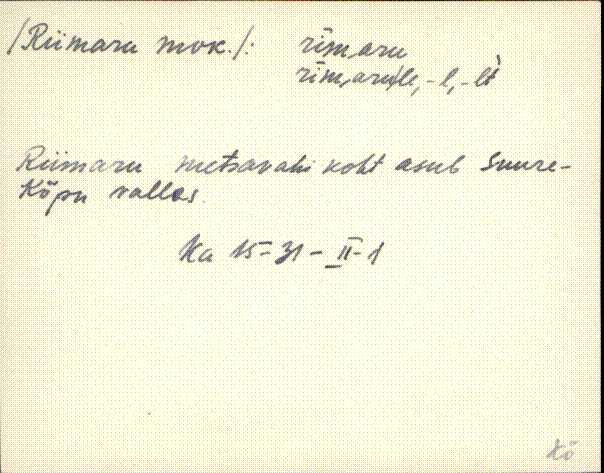 /Riimaru mvk./: rīm,aru
rīm,aru/le, -l, -lt
Riimaru metsavahi koht asub Suure-
Kõpu vallas.
Ka 15-31-II-1
Kõ